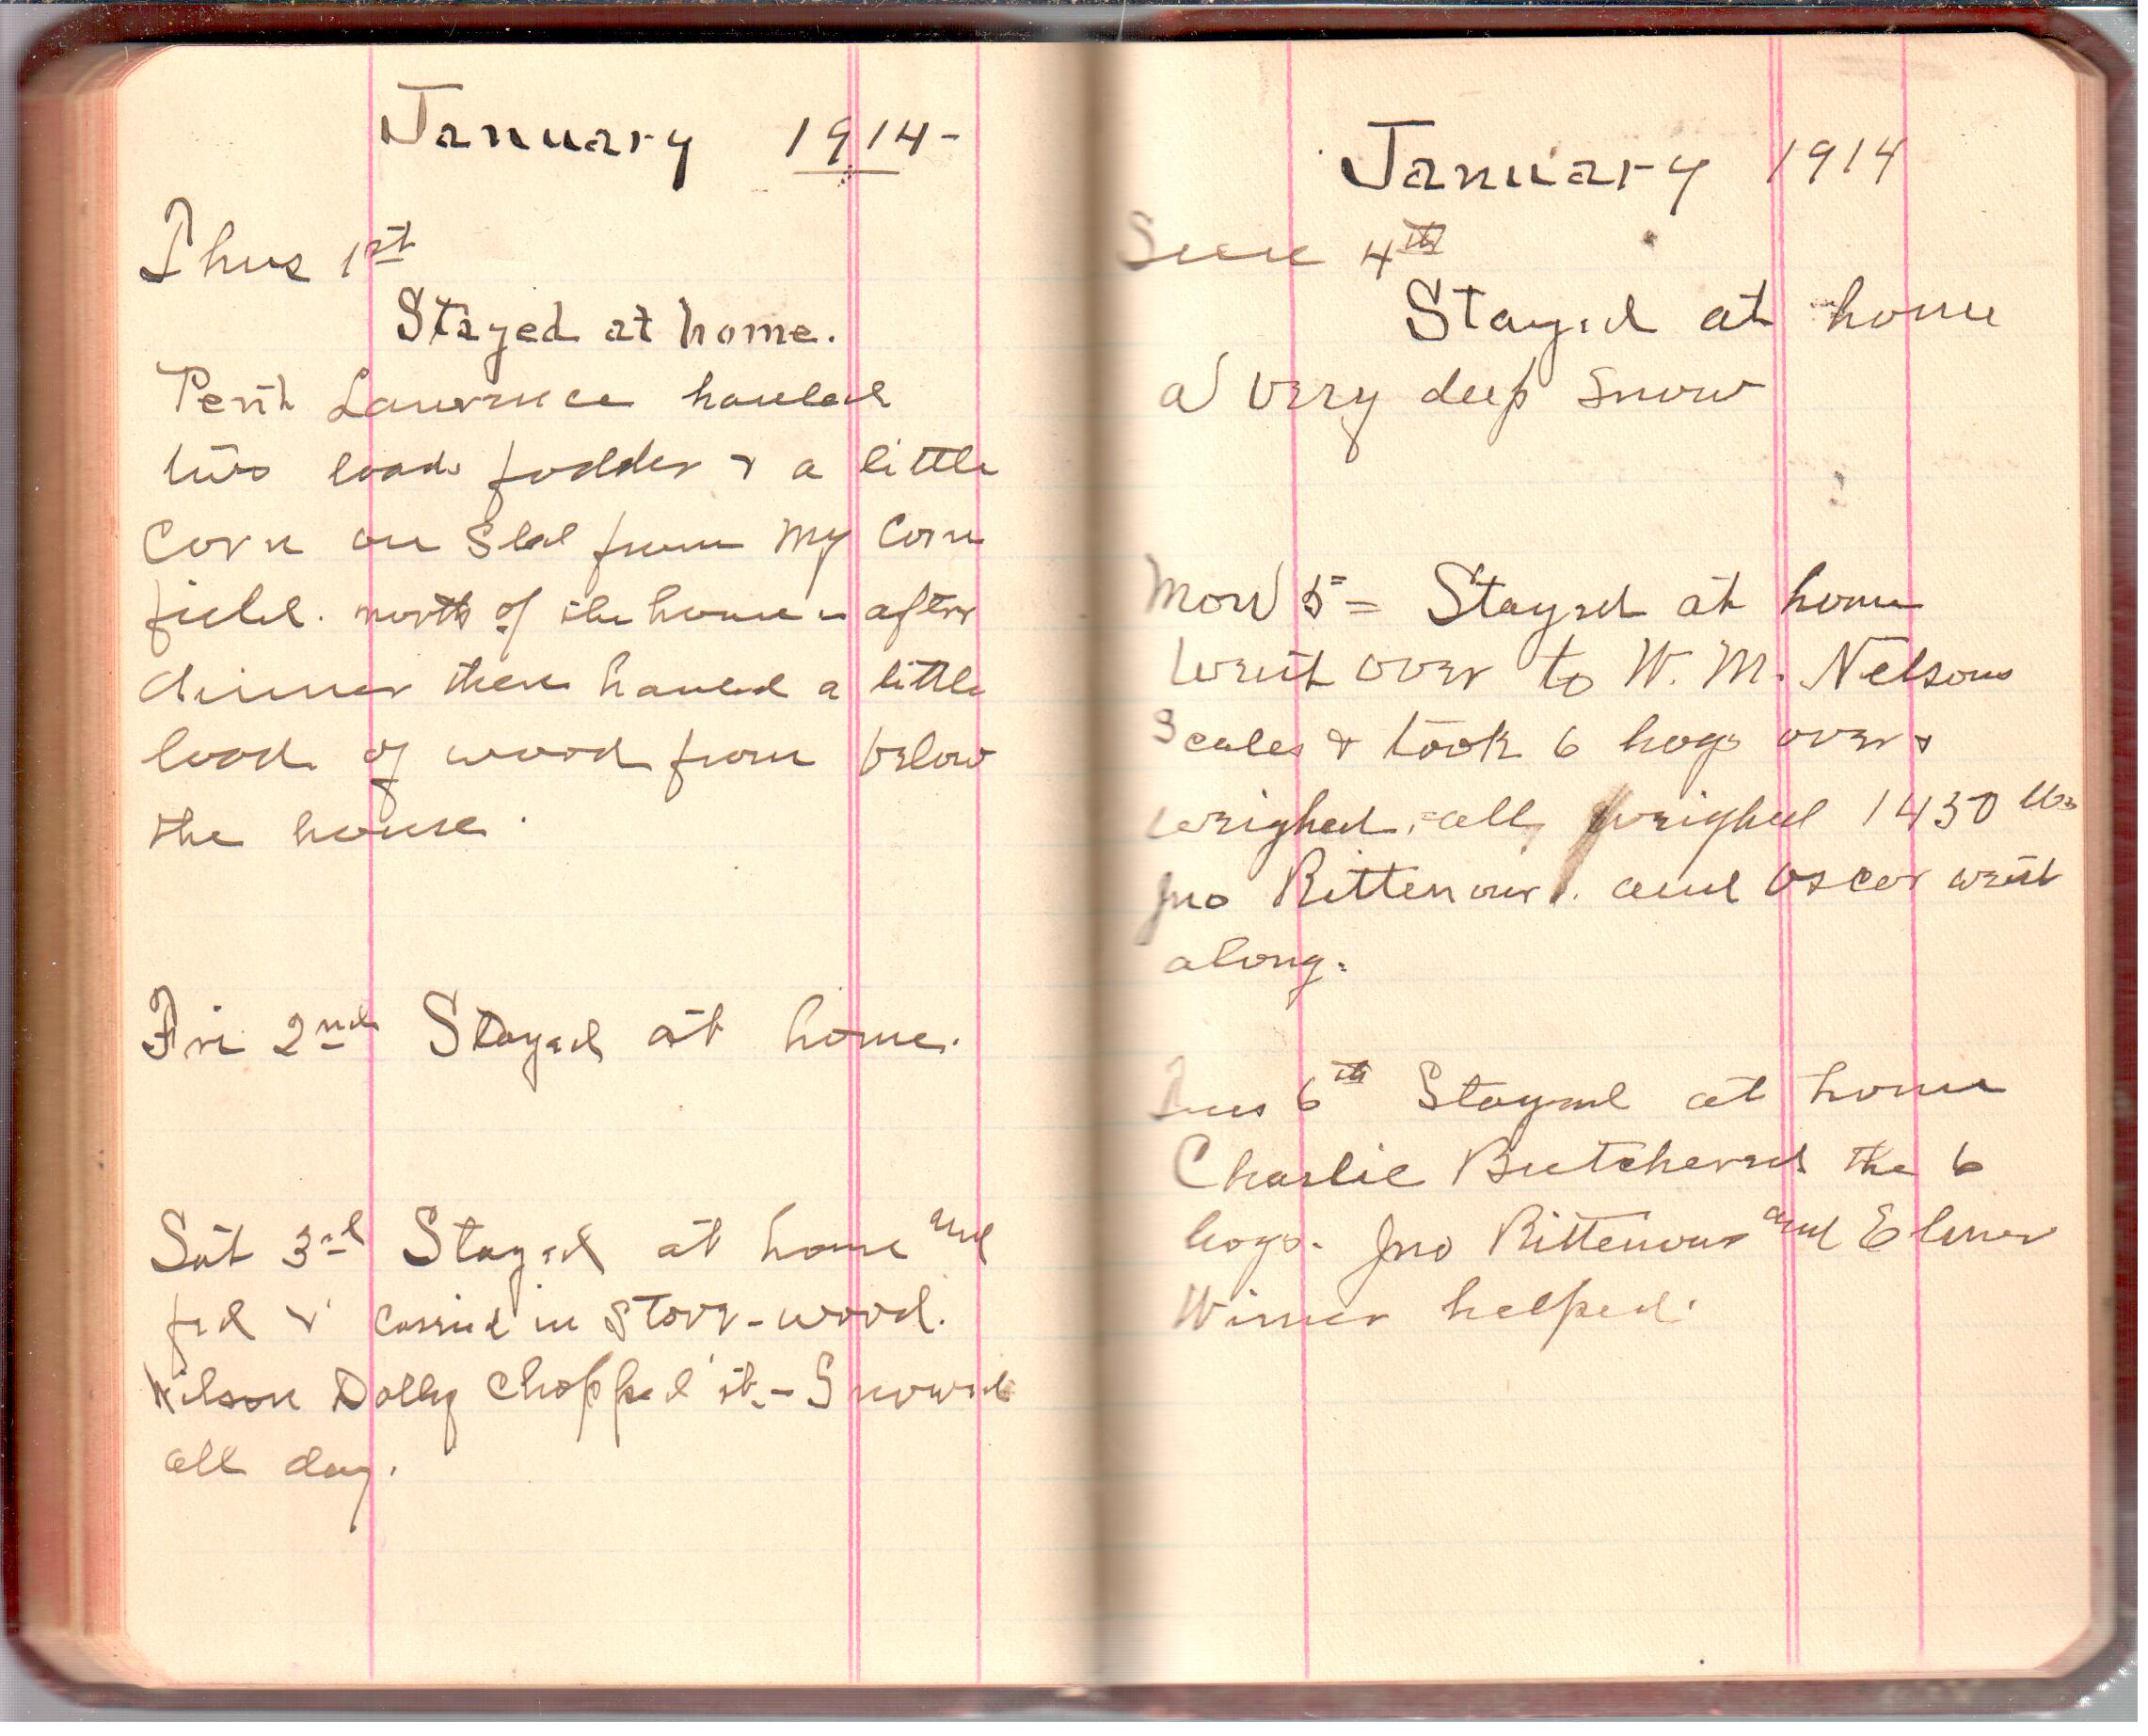 January 1914-
Thus 1st
Stayed at home.
Lawrence hauled
two loads fodder & a little
Corn on Sled from my Corn
field. north of the house - after
dinner then hauled a little
load of wood from below
the house.
Fri 2nd Stayed at home.
Sat 3rd Stayed at home and
fed & carried in Stove-wood.
Wilson Dolly Chopped it - Snowed
all day.
January 1914
Sun 4th
Stayed at home
a very deep Snow
Mon 5 = Stayed at home
went over to W. M. Nelsons
Scales & took 6 hogs over &
weighed, all, weighed 1430 lbs
Jno Rittenour. and Oscar went
along.
Tues 6th Stayed at home
Charlie Butchered the 6
hogs. Jno Rittenour and Elmer
Wimer helped.